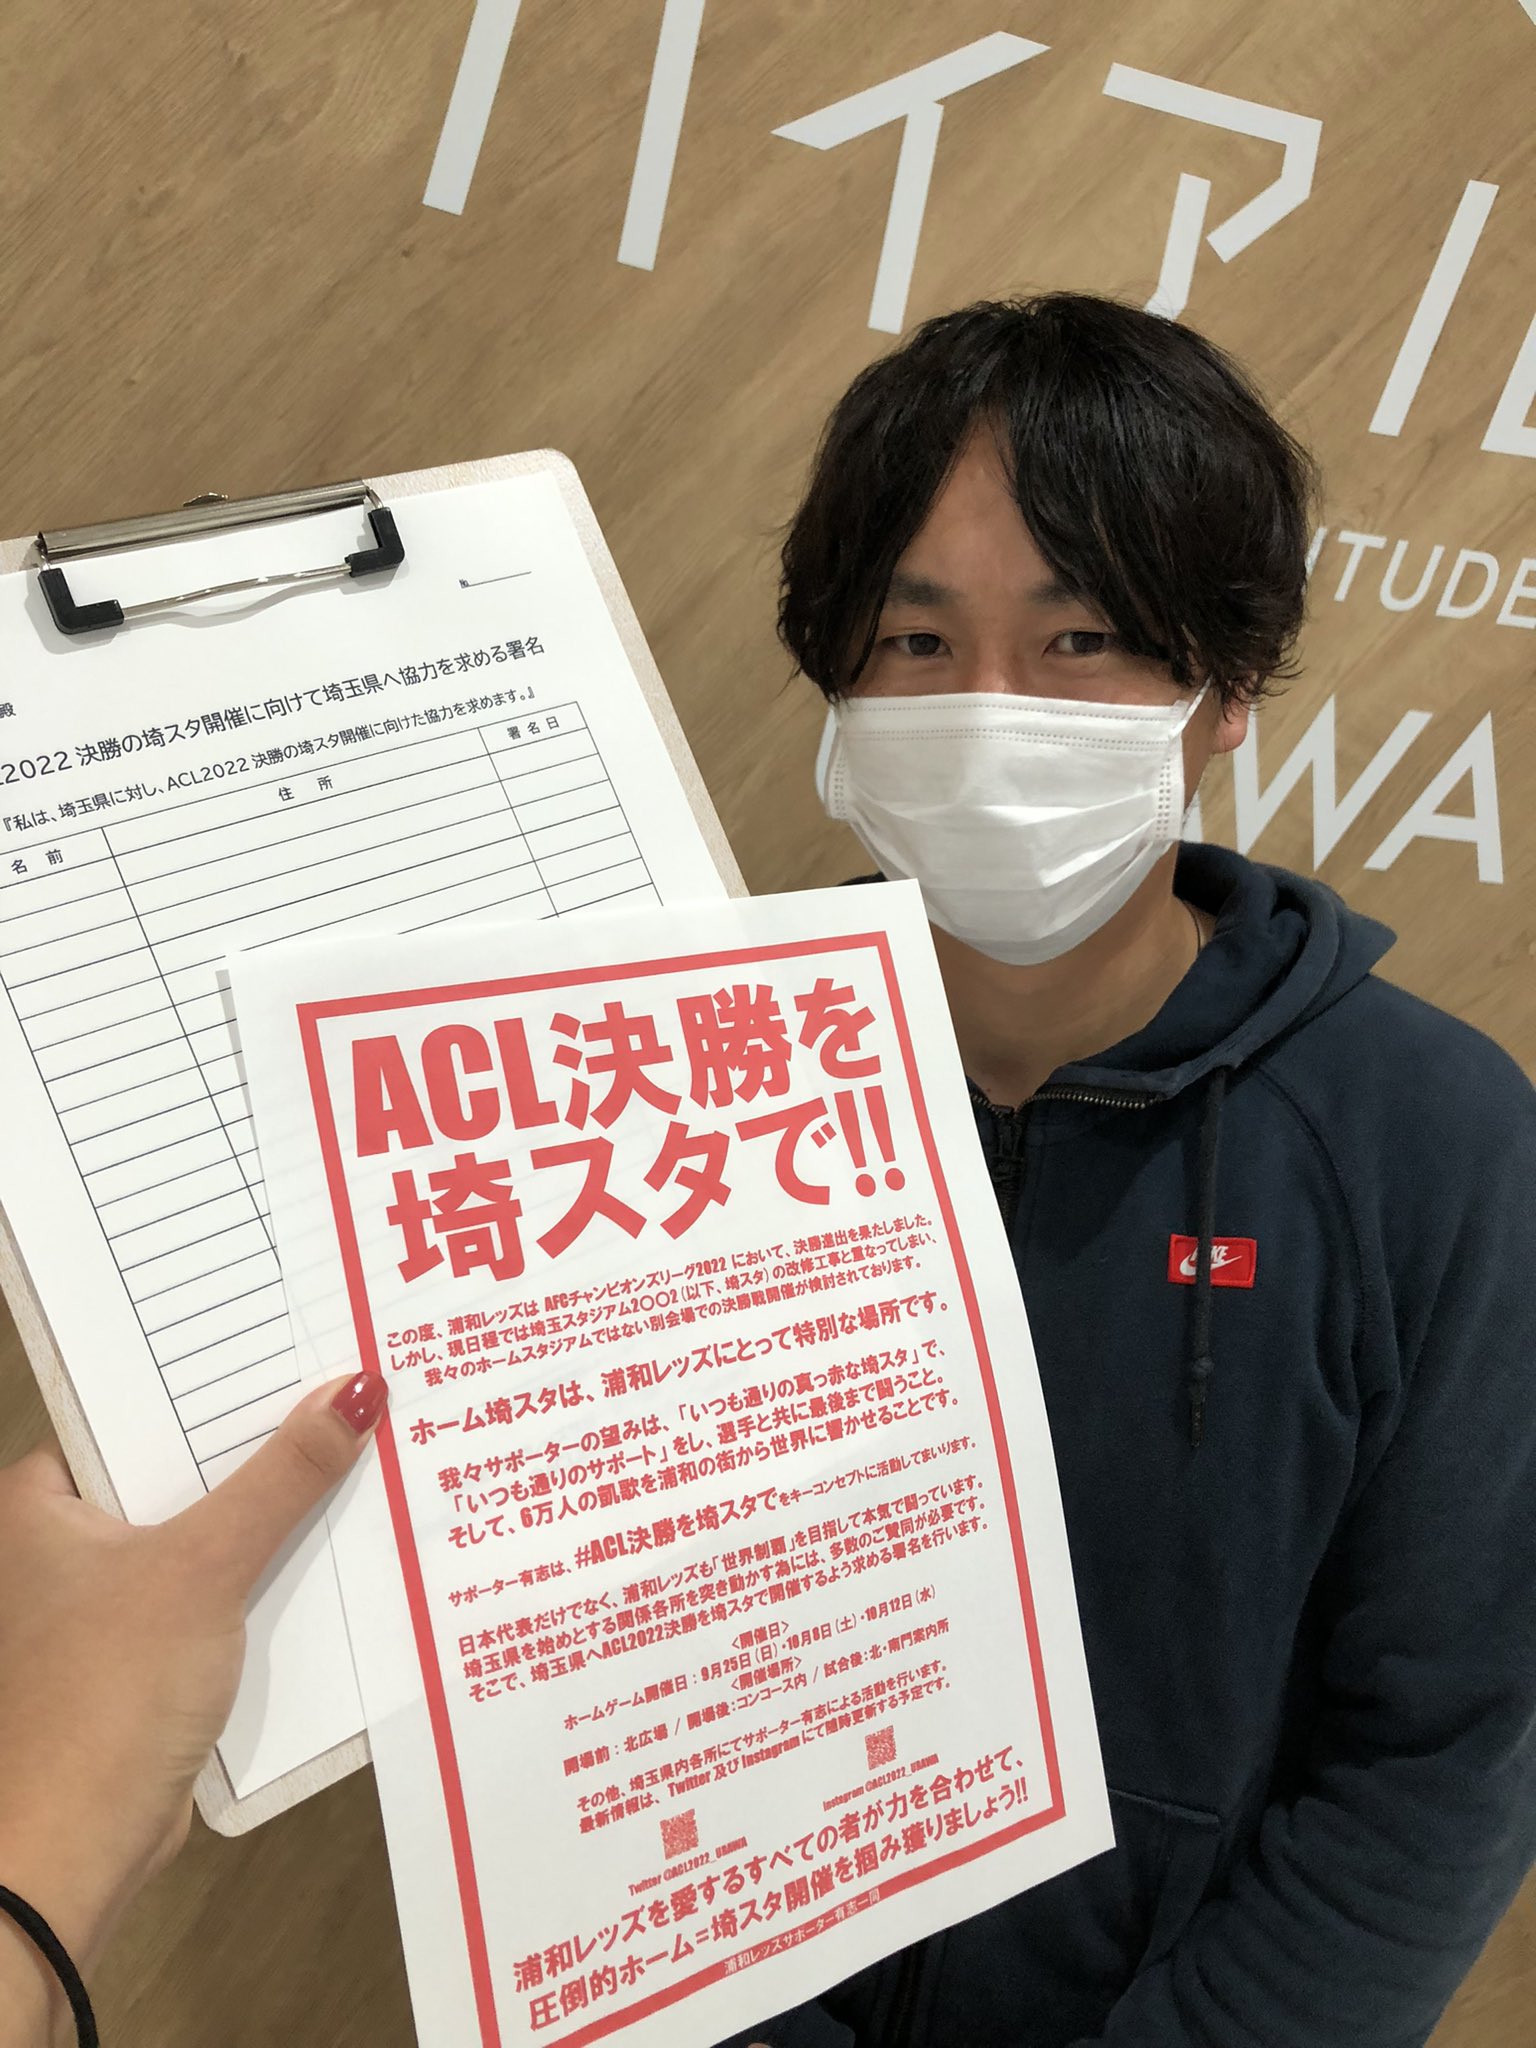 ハイアル
ITUDE
WA
No.
殿
2022 決勝の埼スタ開催に向けて埼玉県へ協力を求める署名
『私は、埼玉県に対し、ACL2022 決勝の埼スタ開催に向けた協力を求めます。』
名 前 住 所 署 名 日
NIKE
ACL決勝を
埼スタで!!
この度、浦和レッズは AFCチャンピオンズリーグ2022 において、決勝進出を果たしました。
しかし、現日程では埼玉スタジアム2〇〇2(以下、埼スタ)の改修工事と重なってしまい、
我々のホームスタジアムではない別会場での決勝戦開催が検討されております。
ホーム埼スタは、浦和レッズにとって特別な場所です。
我々サポーターの望みは、「いつも通りの真っ赤な埼スタ」で、
「いつも通りのサポート」をし、選手と共に最後まで闘うこと。
そして、6万人の凱歌を浦和の街から世界に響かせることです。
サポーター有志は、#ACL決勝を埼スタでをキーコンセプトに活動してまいります。
日本代表だけでなく、浦和レッズも「世界制覇」を目指して本気で闘っています。
埼玉県を始めとする関係各所を突き動かす為には、多数のご賛同が必要です。
そこで、埼玉県へACL2022決勝を埼スタで開催するよう求める署名を行います。
<開催日>
ホームゲーム開催日：9月25日(日)・10月8日(土)・10月12日(水)
<開催場所>
開場前：北広場 / 開場後：コンコース内 / 試合後：北・南門案内所
その他、埼玉県内各所にてサポーター有志による活動を行います。
最新情報は、Twitter 及び Instagram にて随時更新する予定です。
Twitter @ACL2022_URAWA
Instagram @ACL2022_URAWA
浦和レッズを愛するすべての者が力を合わせて、
圧倒的ホーム=埼スタ開催を掴み獲りましょう!!
浦和レッズサポーター有志一同